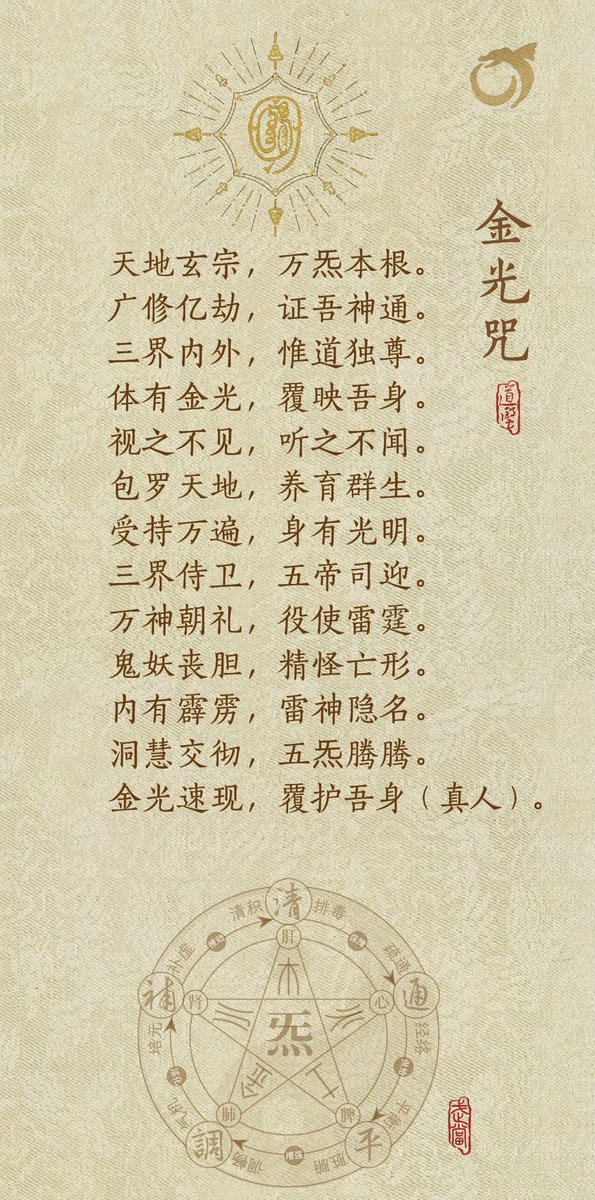 金光咒
天地玄宗，万炁本根。
广修亿劫，证吾神通。
三界内外，惟道独尊。
体有金光，覆映吾身。
视之不见，听之不闻。
包罗天地，养育群生。
受持万遍，身有光明。
三界侍卫，五帝司迎。
万神朝礼，役使雷霆。
鬼妖丧胆，精怪亡形。
内有霹雳，雷神隐名。
洞慧交彻，五炁腾腾。
金光速现，覆护吾身（真人）。
清积
清
排毒
肝
木
补虚
疏通
補
肾
心
通
炁
培元
经络
金
土
气机
肺
脾
平衡
調
平
调畅
增强
脏腑
武當